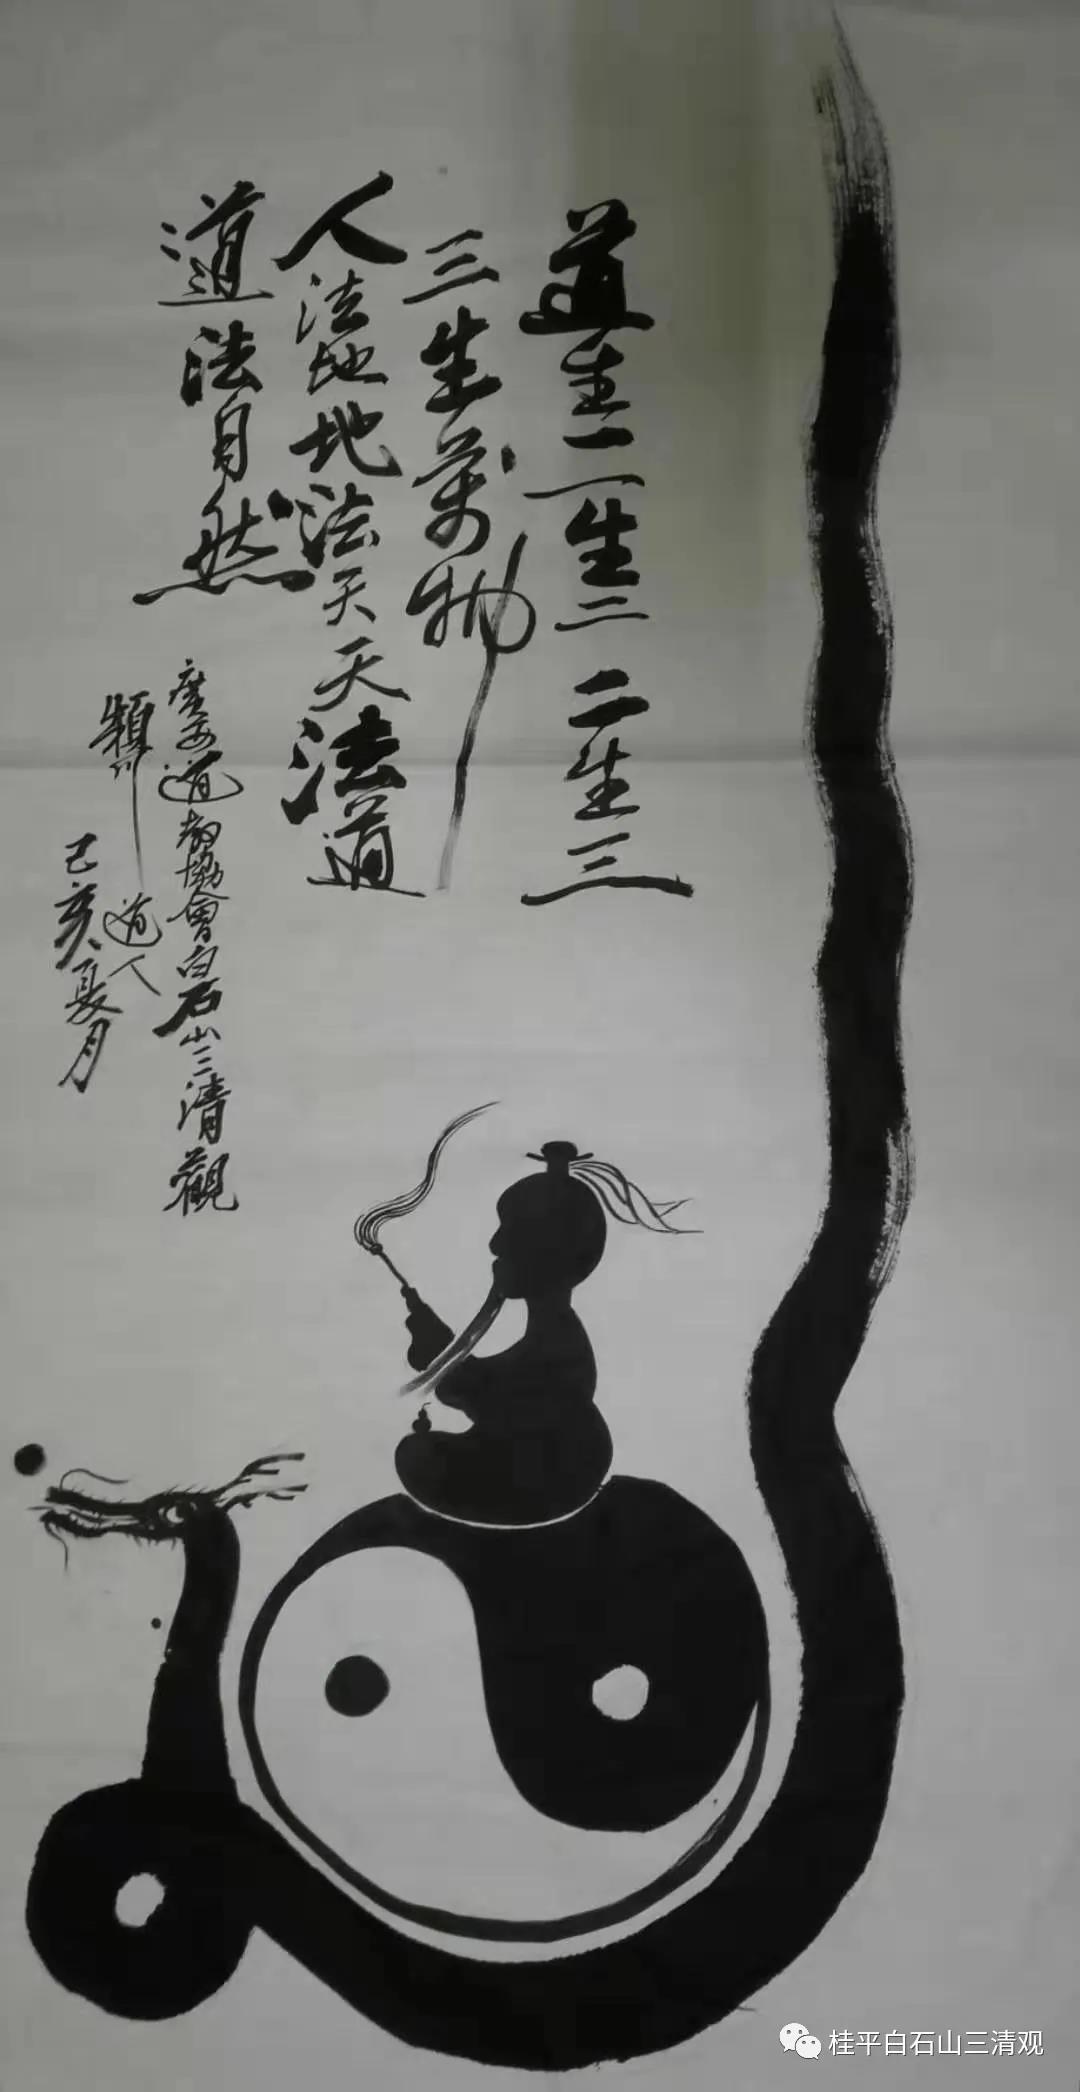 道生一一生二二生三
三生萬物
人法地地法天天法道
道法自然
道教協會白石山三清觀
道人
己亥夏月
桂平白石山三清观